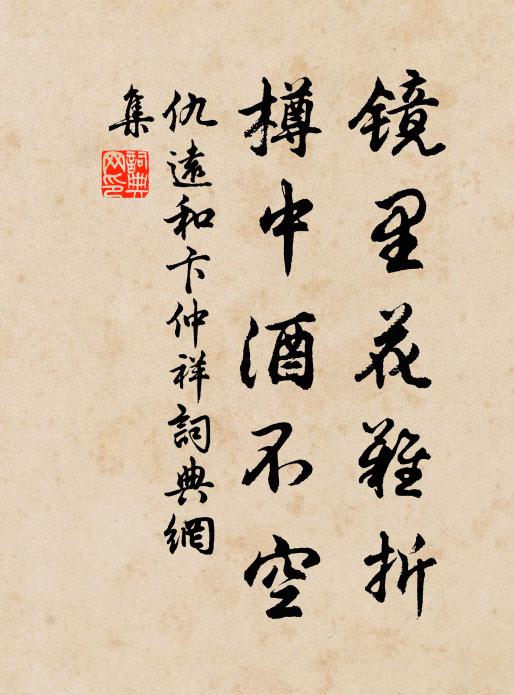 镜里花難折
樽中酒不空
仇遠和卞仲祥詞典網
集
詞典網印